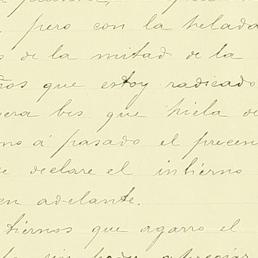 pero con la helada
s de la mitad de la
ños que estoy radicado
era bes que hiela de
mo á pasado el precen
e declare el inbierno
en adelante.
tiernos que agarro el